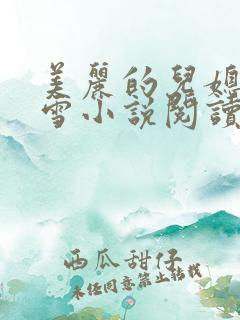 美麗的兒媳
雪小說閱讀
西瓜甜仔
未经同意禁止转载